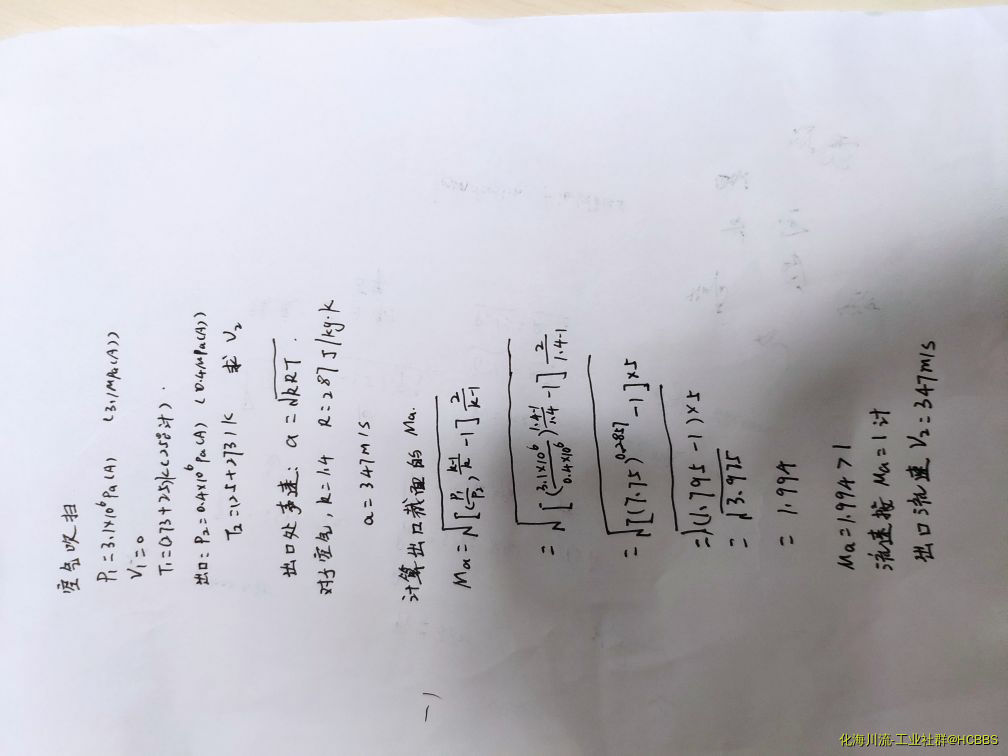 空气吹扫
P₁=3.1×10⁶Pa(A) (3.1MPa(A))
V₁=0
T₁=(273+25)K(25°计).
出口: P₂=0.4×10⁶Pa(A) (0.4MPa(A))
T₂=(25+273)K 求 V₂
出口处声速: a=√kRT.
对于空气, k=1.4 R=287J/kg·k
a=347m/s
计算出口截面的 Ma.
Ma=√[(P₁/P₂)^((k-1)/k) -1] 2/(k-1)
=√[(3.1×10⁶/0.4×10⁶)^((1.4-1)/1.4) -1] 2/(1.4-1)
=√[(7.75)^0.2857 -1]×5
=√(1.795-1)×5
=√3.975
= 1.994
Ma=1.994>1
流速按 Ma=1 计
出口流速 V₂=347m/s
化海川流-工业社群@HCBBS